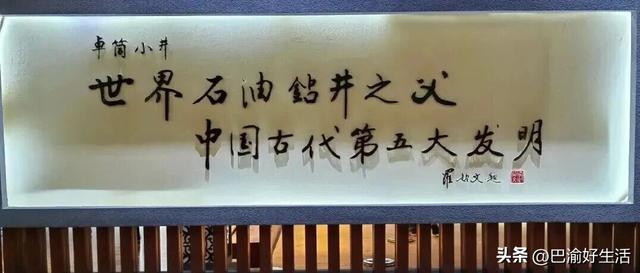 卓筒小井
世界石油鉆井之父
中国古代第五大发明
羅哲文題
头条 @巴渝好生活